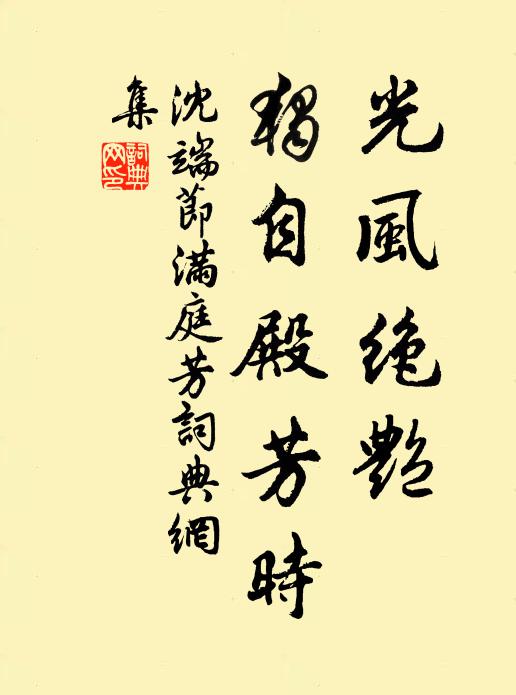 光風絶艷
獨自殿芳時
沈端節滿庭芳詞典網
集
詞典網印